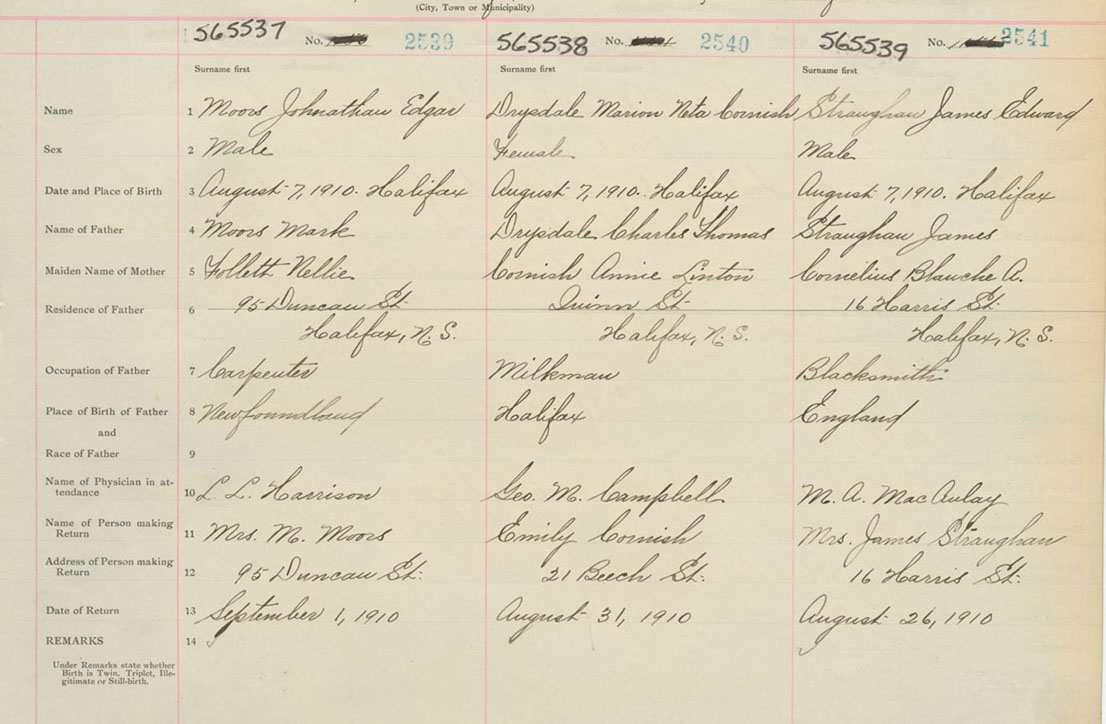 (City, Town or Municipality)
565537 No. 2539 565538 No. 2540 565539 No. 2541
Surname first Surname first Surname first
Name 1 Moors Johnathan Edgar Drysdale Marion Neta Cornish Straughan James Edward
Sex 2 Male Female Male
Date and Place of Birth 3 August 7, 1910. Halifax August 7, 1910. Halifax August 7, 1910. Halifax
Name of Father 4 Moors Mark Drysdale Charles Thomas Straughan James
Maiden Name of Mother 5 Folleth Nellie Cornish Annie Linton Cornelius Blanche A.
Residence of Father 6 95 Duncan St. Quinn St. 16 Harris St.
Halifax, N.S. Halifax, N.S. Halifax, N.S.
Occupation of Father 7 Carpenter Milkman Blacksmith
Place of Birth of Father 8 Newfoundland Halifax England
and
Race of Father 9
Name of Physician in at-
tendance 10 L. L. Harrison Geo. M. Campbell M. A. MacAulay
Name of Person making
Return 11 Mrs. M. Moors Emily Cornish Mrs. James Straughan
Address of Person making
Return 12 95 Duncan St. 21 Beech St. 16 Harris St.
Date of Return 13 September 1, 1910 August 31, 1910 August 26, 1910
REMARKS 14
Under Remarks state whether
Birth is Twin, Triplet, Ille-
gitimate or Still-birth.